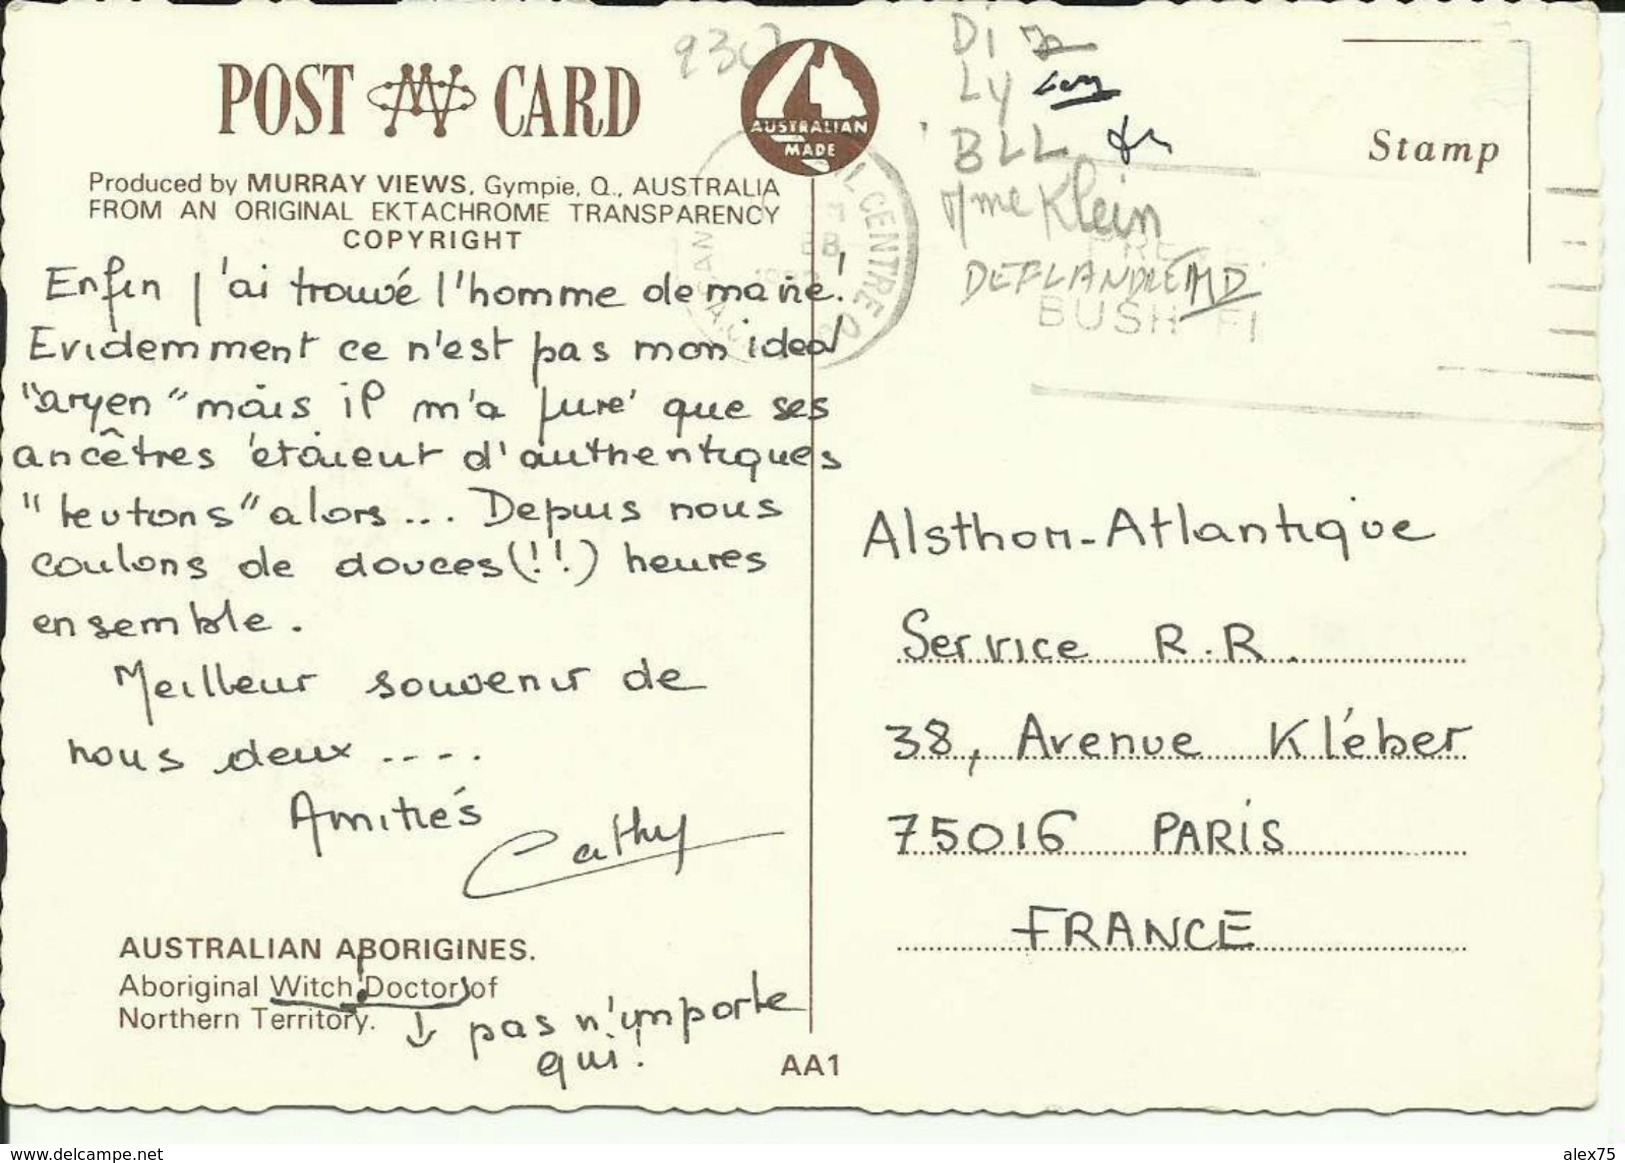 POST CARD
AUSTRALIAN
MADE
Produced by MURRAY VIEWS, Gympie, Q., AUSTRALIA
FROM AN ORIGINAL EKTACHROME TRANSPARENCY
COPYRIGHT
Enfin j'ai trouvé l'homme de ma vie!
Evidemment ce n'est pas mon idéal
"aryen" mais il m'a juré que ses
ancêtres étaient d'authentiques
"teutons" alors ... Depuis nous
coulons de douces (!!) heures
ensemble.
Meilleur souvenir de
nous deux ....
Amitiés
Cathy
AUSTRALIAN ABORIGINES.
Aboriginal Witch Doctor of
Northern Territory.
↓ pas n'importe
qui!
AA1
Di
Ly
BLL
Mme Klein
DEFLANDRE
Stamp
L CENTRE
BUSH FI
Alsthom-Atlantique
Service R.R.
38, Avenue Kléber
75016 PARIS
FRANCE
https://www.delcampe.net
alex75